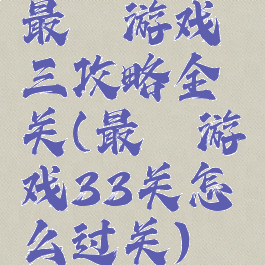 最 游戏
三攻略全
关(最 游
戏33关怎
么过关)